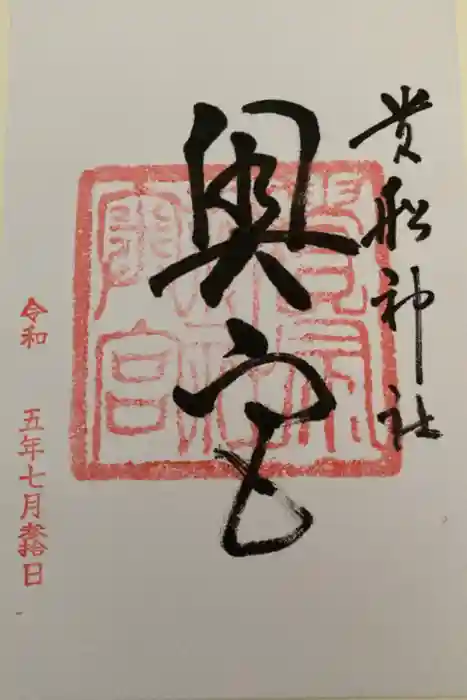 貴船神社
奥宮
令和 五年七月参拾日